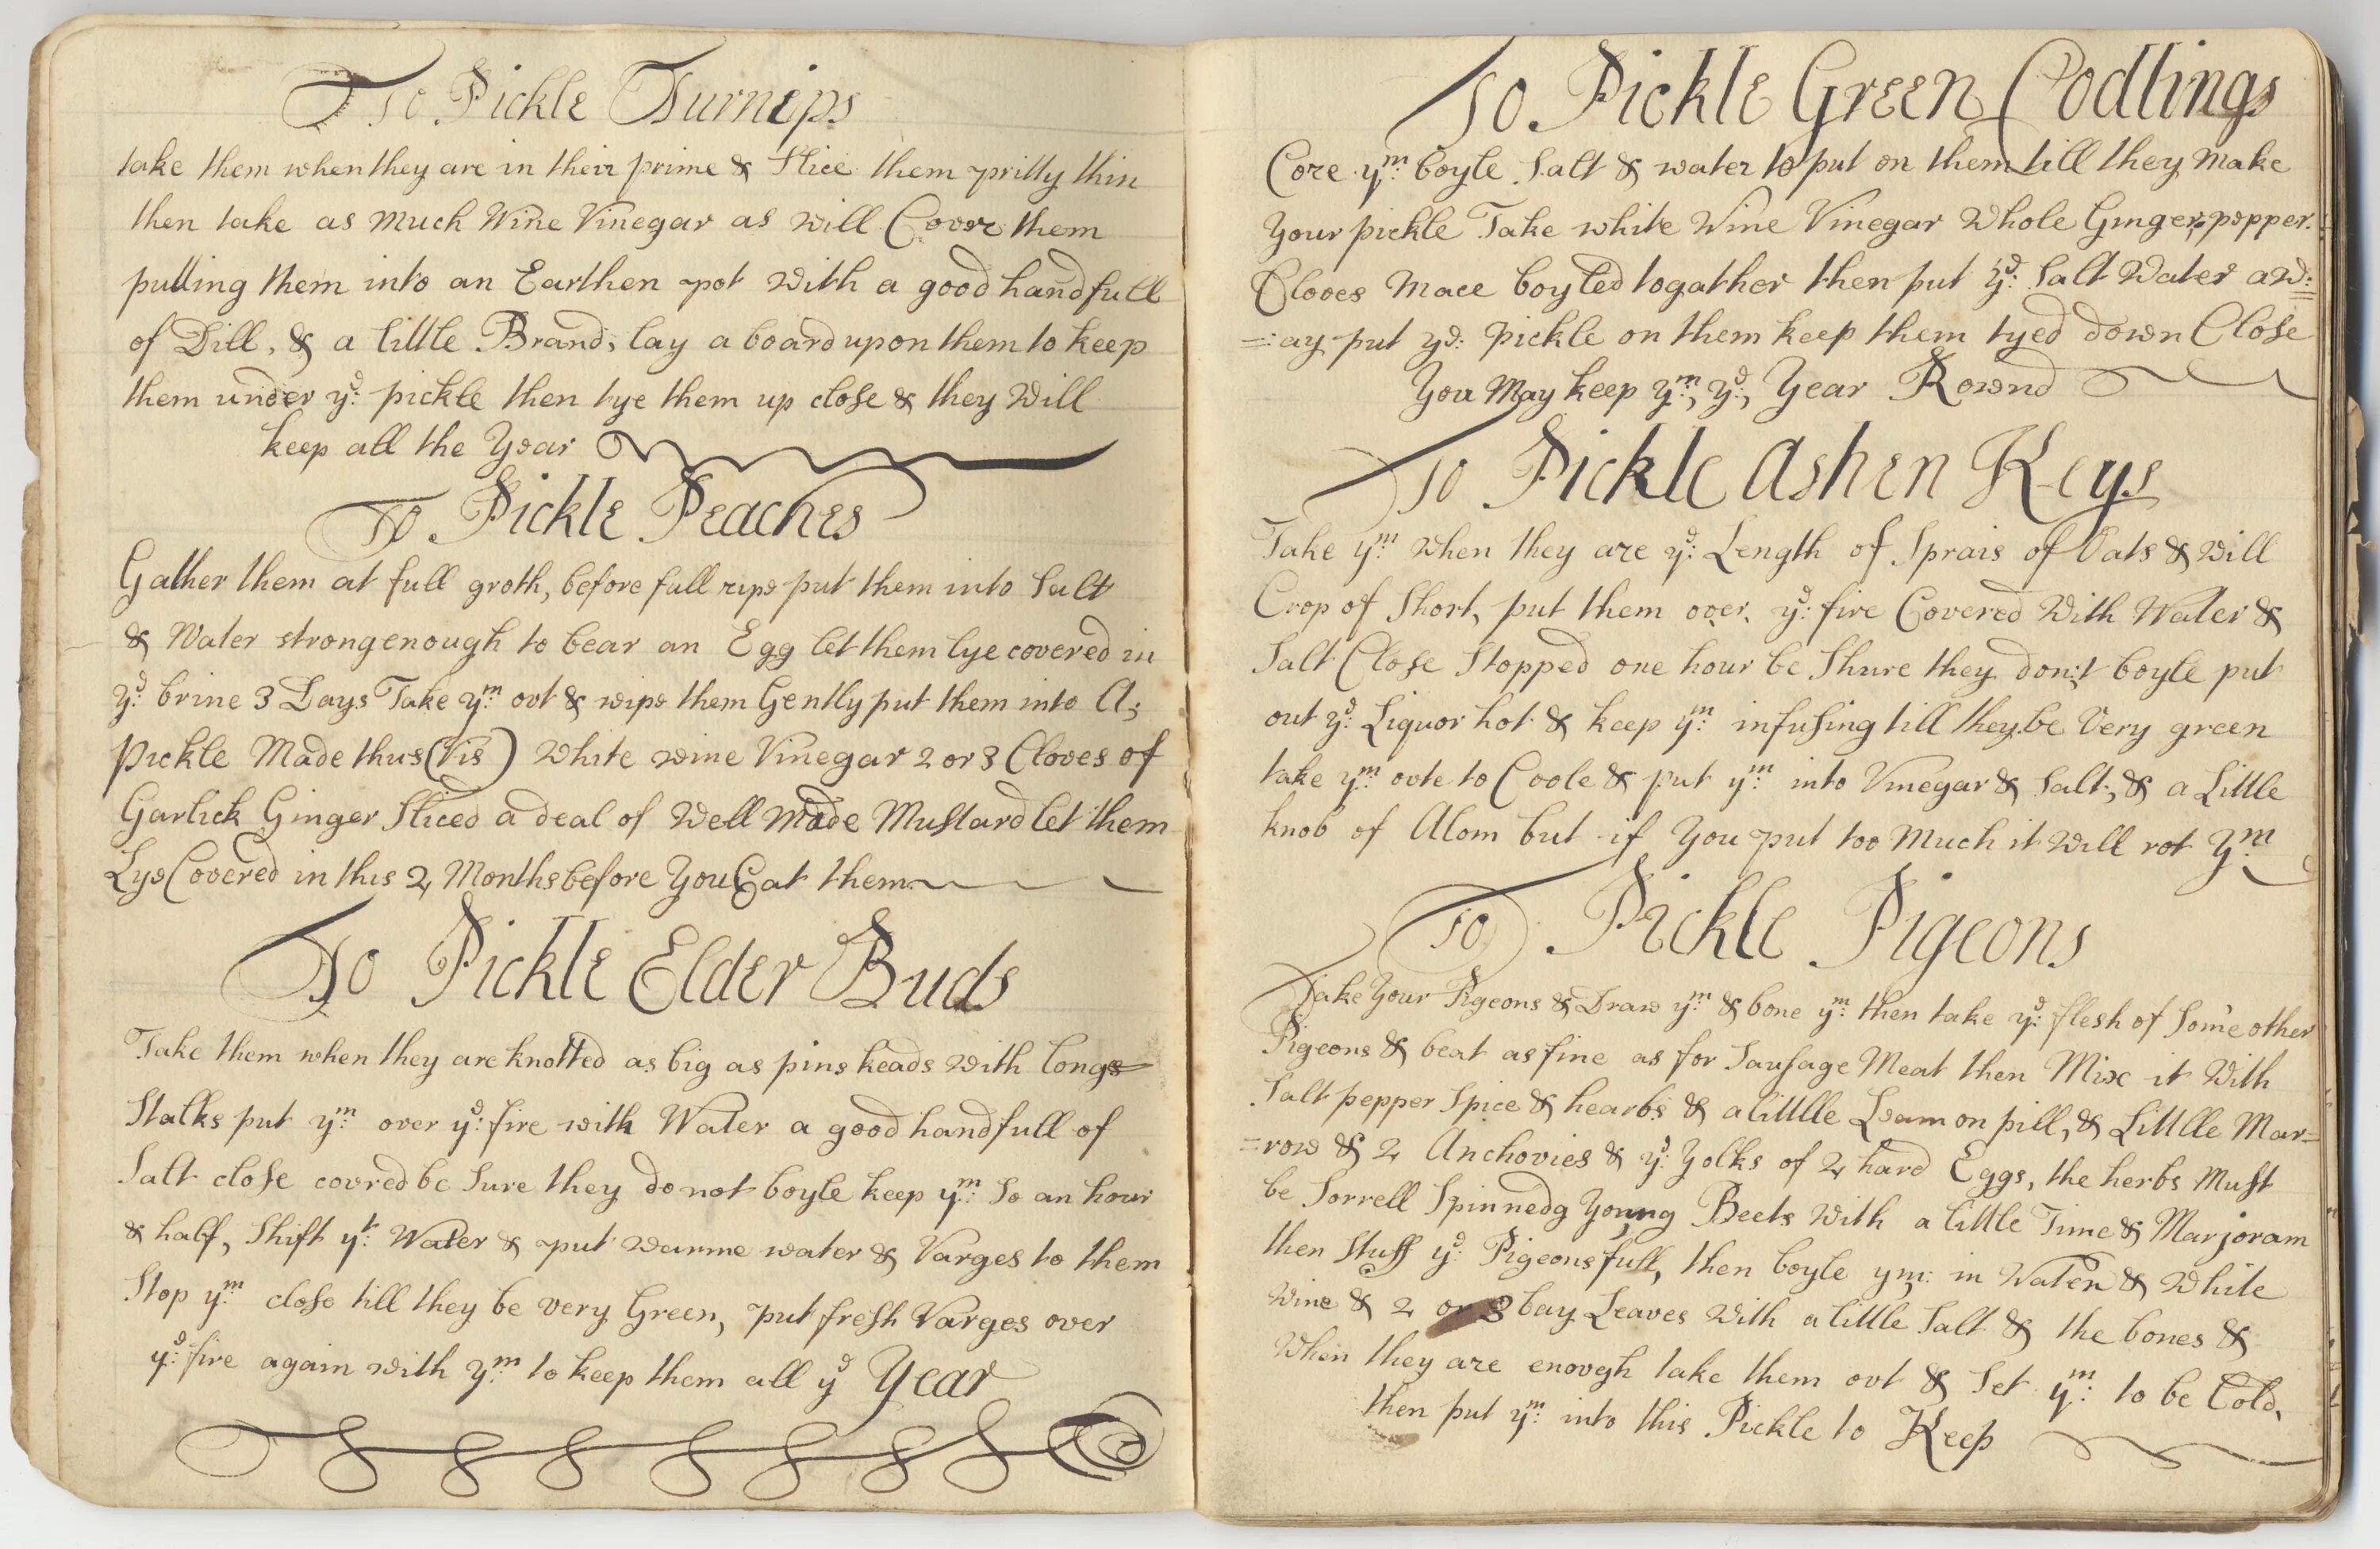 To Pickle Turnips
take them when they are in their prime & Slice them pritty thin
then take as much Wine Vinegar as will Cover them
putting them into an Earthen pot with a good handfull
of Dill, & a little Brand; lay a board upon them to keep
them under ye: pickle then tye them up close & they Will
keep all the Year
To Pickle Peaches
Gather them at full groth, before full ripe put them into Salt
& Water strong enough to bear an Egg let them lye covered in
ye: brine 3 Days Take ym: out & wipe them Gently put them into A;
Pickle Made thus (Vis) White wine Vinegar 2 or 3 Cloves of
Garlick Ginger Sliced a deal of Well Made Mustard let them
Lye Covered in this 2 Months before You Eat them
To Pickle Elder Buds
Take them when they are knotted as big as pins heads with long
Stalks put ym: over ye: fire with Water a good handfull of
Salt close covred be Sure they do not boyle keep ym: So an hour
& half, Shift yt: Water & put warme water & Varges to them
Stop ym: close till they be very Green, put fresh Varges over
ye: fire again with ym: to keep them all ye Year
To Pickle Green Codlings
Core ym: boyle Salt & water to put on them till they Make
Your pickle Take white Wine Vinegar Whole Ginger, pepper.
Cloves Mace boyled togather then put ye: Salt Water aw:=
=:ay put ye: Pickle on them keep them tyed down Close
You May keep ym:, ye:, Year Rownd
To Pickle Ashen Keys
Take ym: When they are ye: Length of Sprais of Oats & Will
Crop of Short, put them over ye: fire Covered With Water &
Salt Close Stopped one hour be Shure they don:t boyle put
out ye: Liquor hot & keep ym: infusing till they be Very green
take ym: oute to Coole & put ym: into Vinegar & Salt, & a Little
knob of Alom but if You put too Much it Will rot Ym:
To Pickle Pigeons
Take Your Pigeons & Draw ym: & bone ym: then take ye: flesh of Some other
Pigeons & beat as fine as for Sausage Meat then Mix it With
Salt pepper Spice & hearbs & a littlle Leamon pill, & Littlle Mar=
=row & 2 Anchovies & ye: Yolks of 2 hard Eggs, the herbs Must
be Sorrell Spinnedg Young Beets With a little Time & Marjoram
then Stuff ye: Pigeons full, then boyle ym: in Water & White
Wine & 2 or 3 bay Leaves With a little Salt & the bones &
When they are enough take them out & Set ym: to be Cold,
then put ym: into this Pickle to Keep